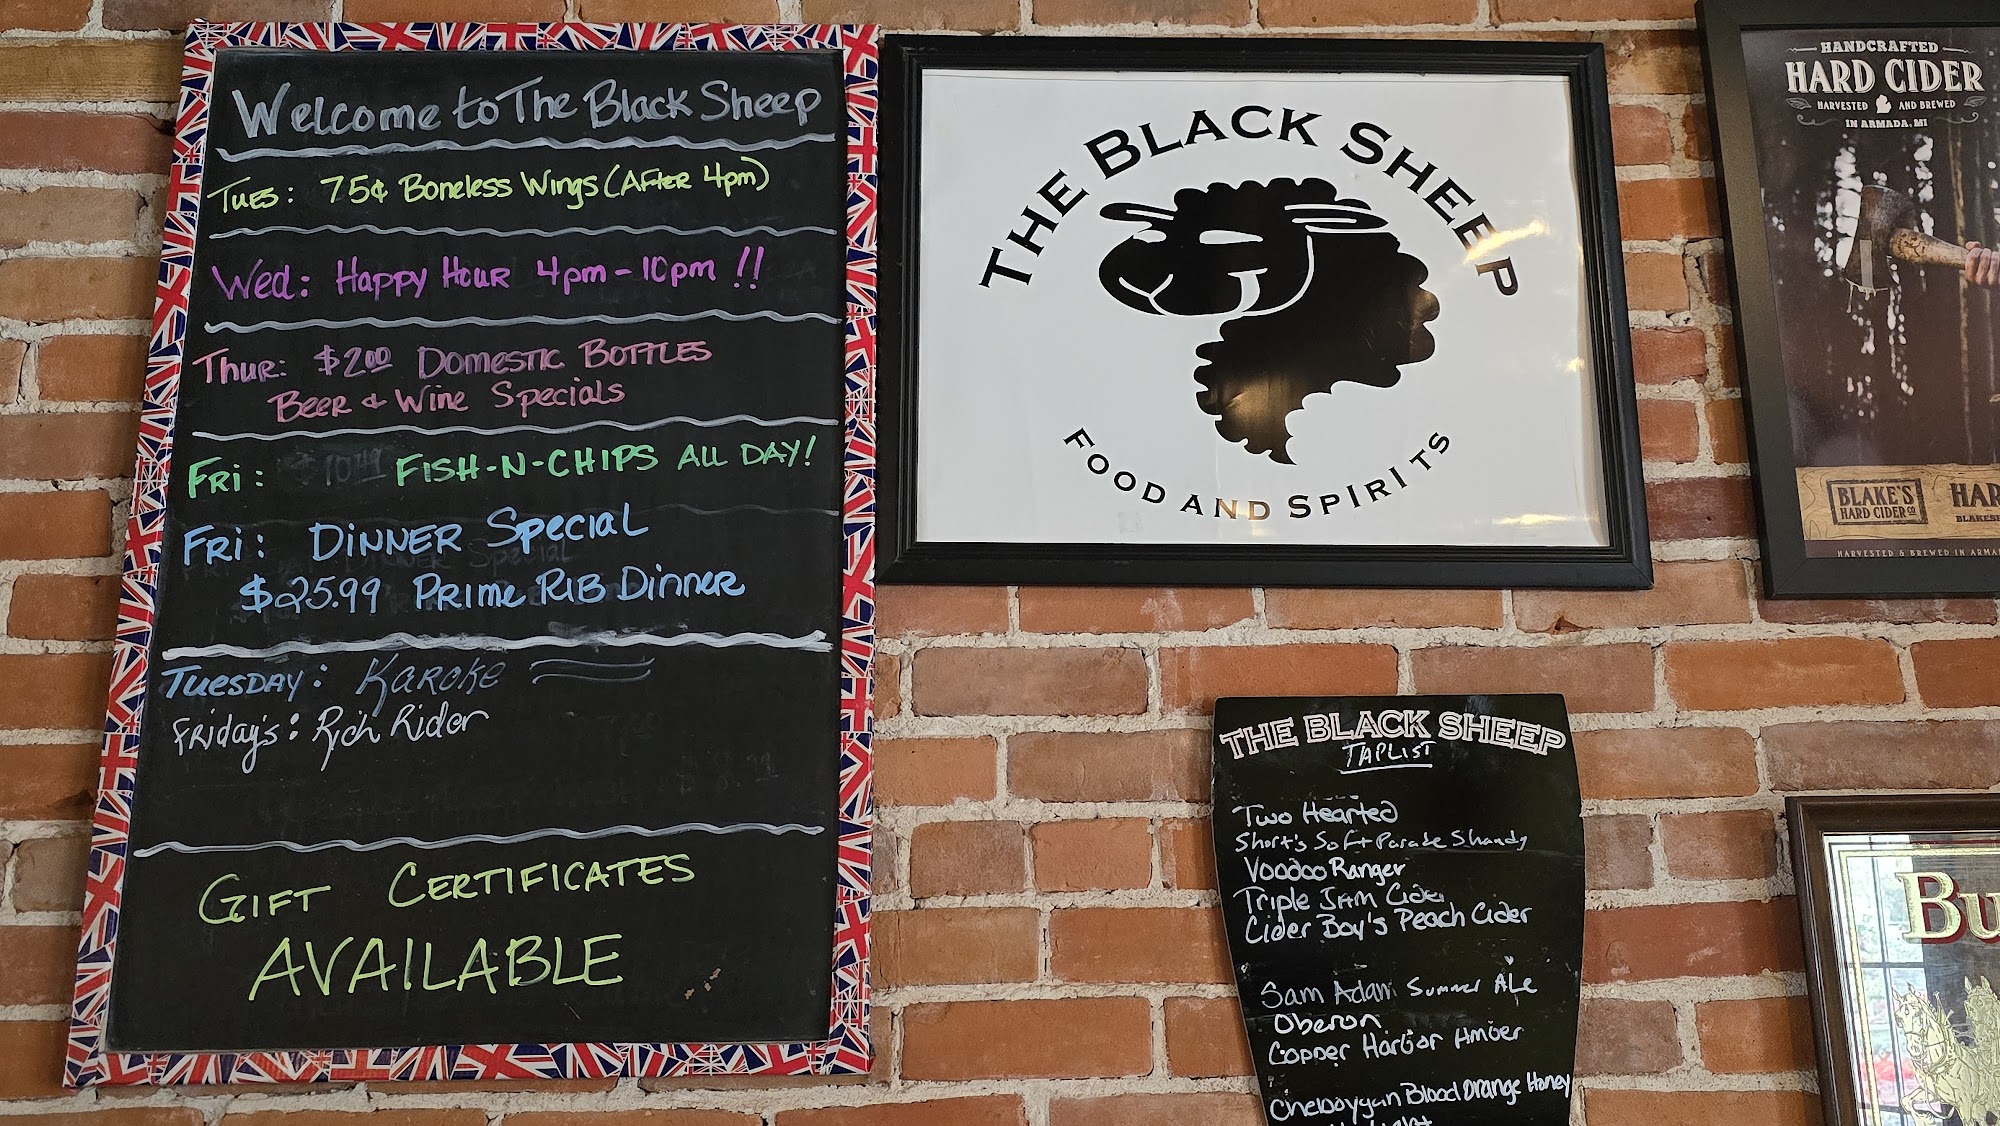 Welcome to The Black Sheep
Tues: 75¢ Boneless Wings (After 4pm)
Wed: Happy Hour 4pm-10pm !!
Thur: $2.00 Domestic Bottles
Beer & Wine Specials
Fri: Fish-N-Chips All Day!
Fri: Dinner Special
$25.99 Prime Rib Dinner
Tuesday: Karoke
Friday's: Rich Rider
Gift Certificates
AVAILABLE
THE BLACK SHEEP
FOOD AND SPIRITS
HANDCRAFTED
HARD CIDER
HARVESTED AND BREWED
IN ARMADA, MI
BLAKE'S
HARD CIDER CO
HAR
BLAKES
HARVESTED & BREWED IN ARMA
THE BLACK SHEEP
TAPLIST
Two Hearted
Short's Soft Parade Shandy
Voodoo Ranger
Triple Jam Cider
Cider Boy's Peach Cider
Sam Adam Summer Ale
Oberon
Copper Harbor Amber
Cheboygan Blood Orange Honey
Bu